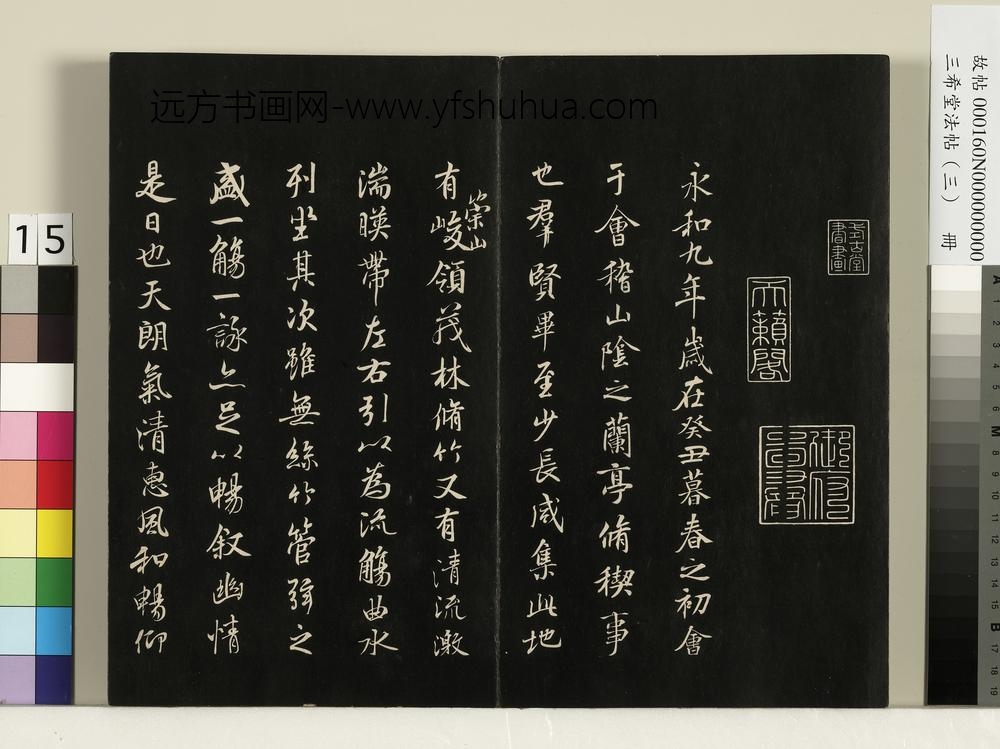 故帖 000160N000000000
三希堂法帖(三) 冊
天籟閣
永和九年歲在癸丑暮春之初會
于會稽山陰之蘭亭脩稧事
也羣賢畢至少長咸集此地
有崇山峻領茂林脩竹又有清流激
湍暎帶左右引以為流觴曲水
列坐其次雖無絲竹管弦之
盛一觴一詠亦足以暢叙幽情
是日也天朗氣清惠風和暢仰
远方书画网-www.yfshuhua.com
15
A 1 2 3 4 5 6 M 8 9 10 11 12 13 14 15 B 17 18 19